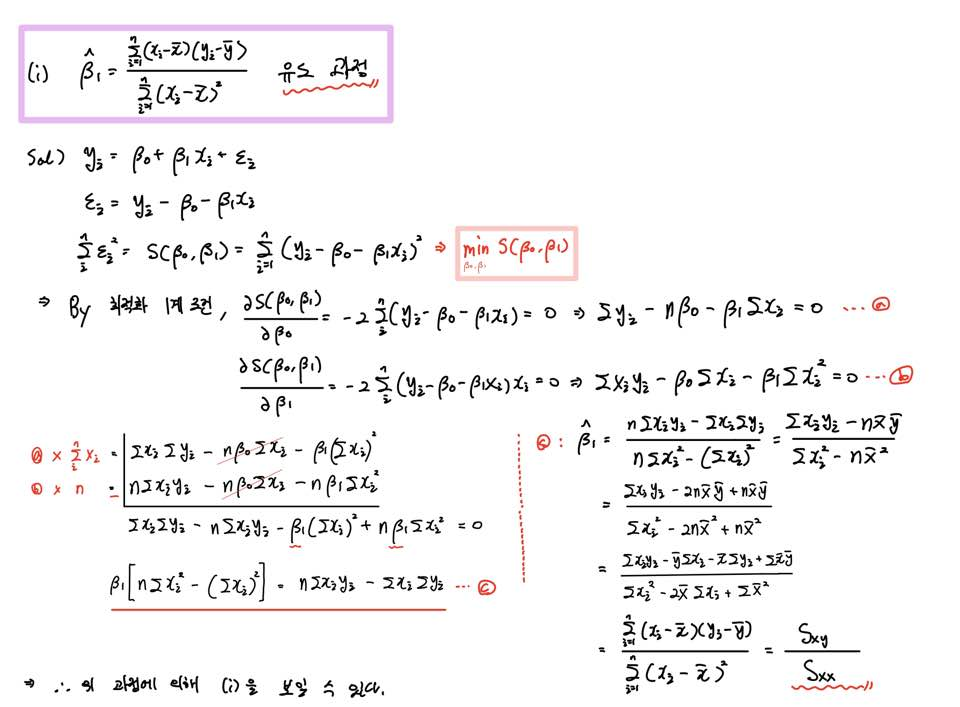 (i) β̂₁ = Σⁿᵢ₌₁(xᵢ-x̄)(yᵢ-ȳ) / Σⁿᵢ₌₁(xᵢ-x̄)² 유도 과정
Sol) yᵢ = β₀ + β₁xᵢ + εᵢ
εᵢ = yᵢ - β₀ - β₁xᵢ
Σⁿᵢ εᵢ² = S(β₀, β₁) = Σⁿᵢ₌₁ (yᵢ - β₀ - β₁xᵢ)² ⇒ min_{β₀,β₁} S(β₀, β₁)
⇒ By 최적화 1계 조건, ∂S(β₀,β₁)/∂β₀ = -2Σⁿᵢ(yᵢ - β₀ - β₁xᵢ) = 0 ⇒ Σyᵢ - nβ₀ - β₁Σxᵢ = 0 ... ⓐ
∂S(β₀,β₁)/∂β₁ = -2Σⁿᵢ(yᵢ - β₀ - β₁xᵢ)xᵢ = 0 ⇒ Σxᵢyᵢ - β₀Σxᵢ - β₁Σxᵢ² = 0 ... ⓑ
ⓐ × Σⁿᵢ xᵢ = Σxᵢ Σyᵢ - nβ₀Σxᵢ - β₁(Σxᵢ)²
ⓑ × n = - nΣxᵢyᵢ - nβ₀Σxᵢ - nβ₁Σxᵢ²
ΣxᵢΣyᵢ - nΣxᵢyᵢ - β₁(Σxᵢ)² + nβ₁Σxᵢ² = 0
β₁[nΣxᵢ² - (Σxᵢ)²] = nΣxᵢyᵢ - Σxᵢ Σyᵢ ... ⓒ
ⓒ : β̂₁ = nΣxᵢyᵢ - ΣxᵢΣyᵢ / nΣxᵢ² - (Σxᵢ)² = Σxᵢyᵢ - nx̄ȳ / Σxᵢ² - nx̄²
= Σxᵢyᵢ - 2nx̄ȳ + nx̄ȳ / Σxᵢ² - 2nx̄² + nx̄²
= Σxᵢyᵢ - ȳΣxᵢ - x̄Σyᵢ + Σx̄ȳ / Σxᵢ² - 2x̄Σxᵢ + Σx̄²
= Σⁿᵢ₌₁(xᵢ-x̄)(yᵢ-ȳ) / Σⁿᵢ₌₁(xᵢ-x̄)² = Sxy / Sxx
⇒ ∴ 위 과정에 의해 (i)을 보일 수 있다.